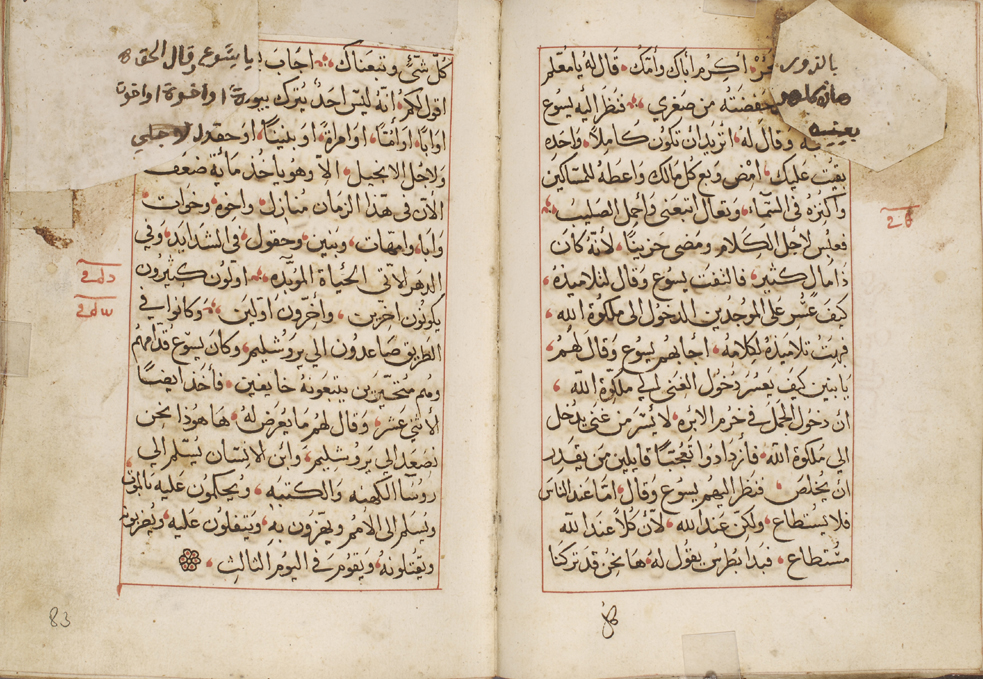 بالزور تجر أكرم أباك وأمك قال له يا معلم
هاذه كلها حفضته من صغري فنظر اليه يسوع
بعينيه وقال له اتريد ان تكون كاملاً واحده
بقيت عليك امض وبع كل مالك واعطه للمساكين
واكنزه في السماء وتعال اتبعني واحمل الصليب
فعبس لاجل الكلام ومضى حزيناً لانه كان
ذا مال كثير فالتفت يسوع وقال لتلاميذه
كيف عسر على الموجدين الدخول الى ملكوة الله
فبهت تلاميذه لكلامه اجابهم يسوع وقال لهم
يا بنين كيف يعسر دخول الغنى الي ملكوة الله
ان دخول الجمل في خرم الابره لايسر من غني يدخل
الي ملكوة الله فأزدادوا تعجباً قايلين من يقدر
ان يخلص فنظر اليهم يسوع وقال امّا عند الناس
فلا يستطاع ولكن عند الله لأن كلاً عند الله
مستطاع فبدا بطرس يقول له ها نحن قد تركنا
كل شيء وتبعناك اجاب يسوع وقال الحق
اقول لكم انه ليس احد يترك بيوة او اخوة او اخوت
او ابا او امّا او امراة او بنيناً او حقول لاجلي
ولاجل الانجيل الا وهو ياخذ ماية ضعف
الآن في هذا الزمان منازل واخوه وخوات
وابا وامهات وبنين وحقول في الشدايد وفي
الدهر الاتى الحياة الموبده اولون كثيرون
يكونون اخرين وأخرون اولين وكانوا في
الطريق صاعدون الي يروشليم وكان يسوع قدامهم
وهم متحيرين يتبعونه خايفين فأخذ ايضاً
الاثني عشر وقال لهم ما يعرض له ها هوذا نحن
نصعد الي يروشليم وابن الانسان يسلم الي
روسآ الكهنه والكتبه ويحكمون عليه بالموت
ويسلم الى الامم ويهزون به ويتفلون عليه ويضربون
ويقتلونه ويقوم في اليوم الثالث
83